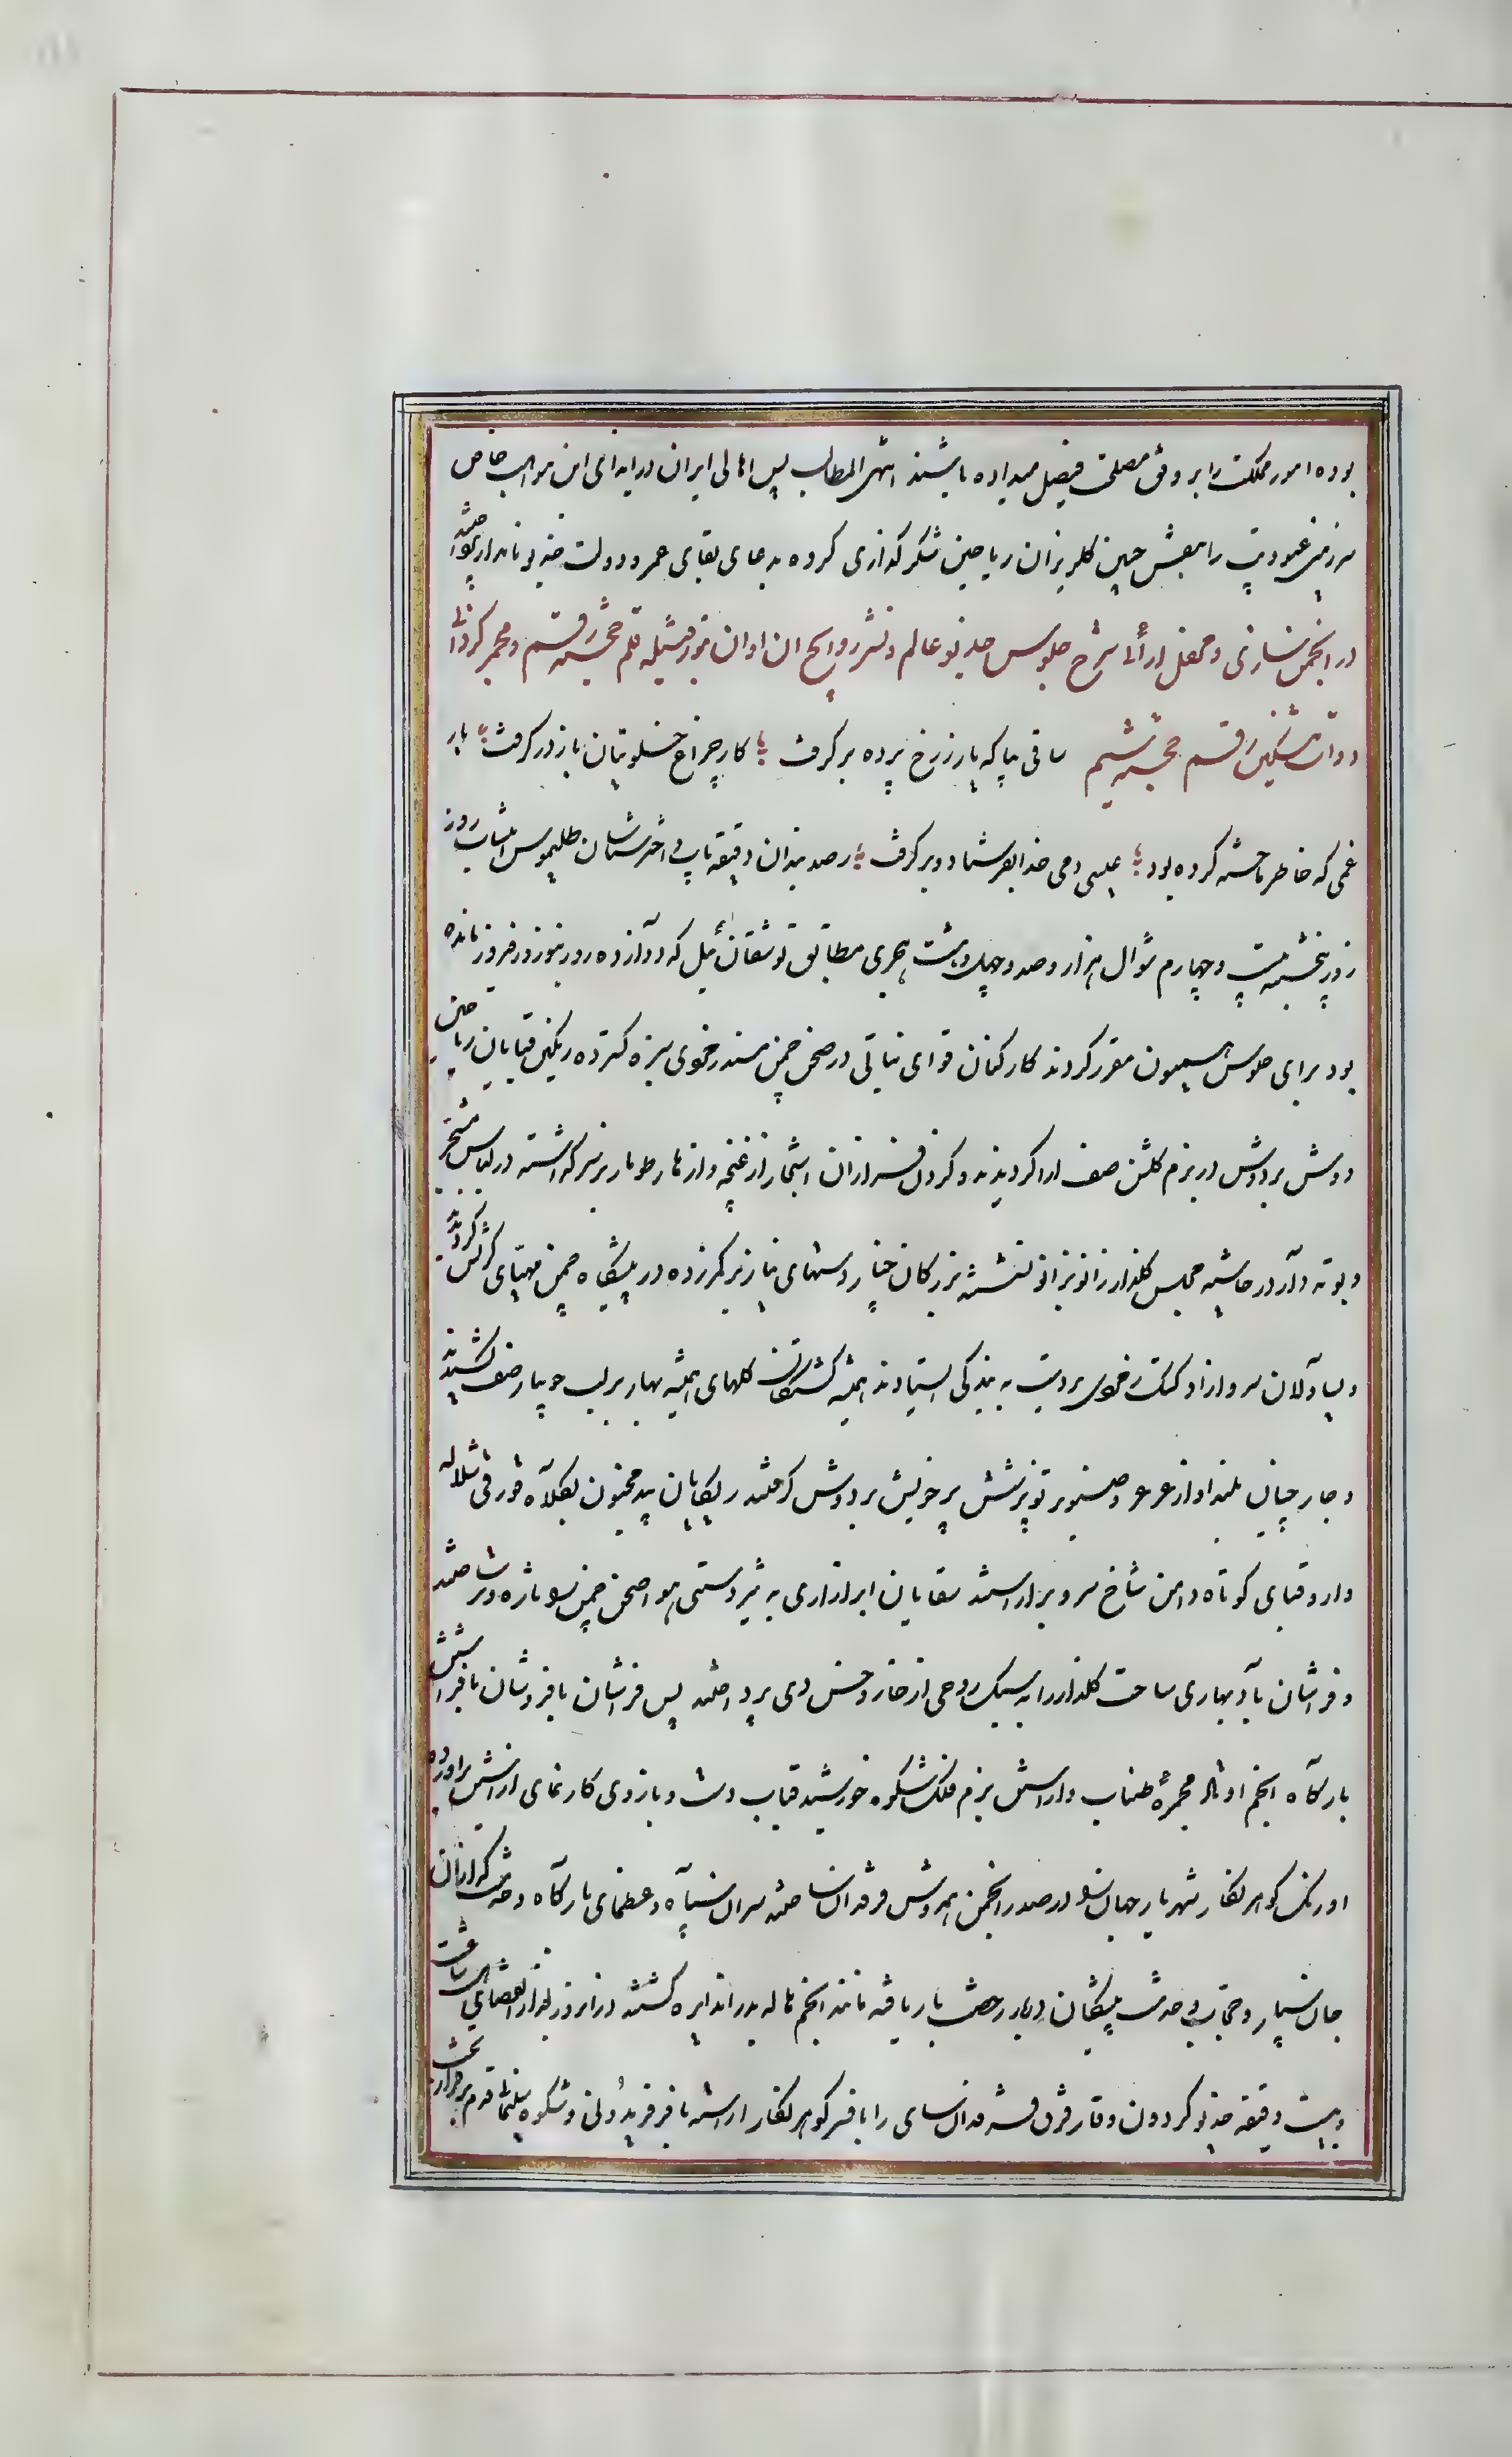 بوده امور مملکت را بر وفق مصلحت فیصل میداده باشند انتهی المطالب پس اهالی ایران در ازای این مواهب خاص
سرزمین عبودیت را بنقش جبین گلریزان ریاحین شکرگذاری کرده بدعای بقای عمر و دولت خدیو نامدار پرداختند
در انجمن سازی و محفل آرائی شرح جلوس خدیو عالم و نشر روایح آن اوان بخور فتیله قلم خجسته رقم و مجمر گردان
دوات مشکین رقم خجسته شیم ساقی بیا که یار ز رخ پرده برگرفت کار چراغ خلوتیان باز در گرفت بار
غمی که خاطر ما خسته کرده بود عیسی دمی خدا بفرستاد و برگرفت رصد بندان دقیقه یاب و اخترشناسان بطلیموس انتساب روز
روز پنجشنبه بیست و چهارم شوال هزار و صد و چهل و هشت هجری مطابق توشقان ئیل که دوازده روز بنوروز فیروز مانده
بود برای جلوس میمون مقرر کردند کارکنان قوای نباتی در صحن چمن مسند زمردی سبزه گسترده رنگین قبایان ریاحین
دوش بر دوش در بزم گلشن صف آرا گردیدند و گردن فرازان اشجار از غنچه و ازهار طومار بر سر گذاشته در لباس مشجر
و بوته دار در حاشیه مجلس گلزار زانو بزانو نشستند بزرگان چنار دستهای نیاز بر کمر زده در پیشگاه چمن مهیای کرنش گردیدند
و یساولان سرو آزاد کتک زمردی بر دست به بندگی ایستادند همیشه کشیکان گلهای همیشه بهار بر لب جویبار صف کشیدند
و جارچیان بلند آواز عرعر و صنوبر تبرزین پر خویش بر دوش گرفتند ریکایان بید مجنون بکلاه قورقی شلاله
دار و قبای کوتاه دامن شاخ سر و بر آراستند سقایان ابر آزاری به تردستی هوا صحن چمن را تازه و تر ساختند
و فراشان باد بهاری ساحت گلزار را به سبک روحی از خار و خس دی پرداختند پس فراشان با فر و شان بافراشتن
بارگاه انجم اوتاد مجره طناب و آرایش بزم فلک شکوه خورشید قباب دست و بازوی کارنمای آرایش برآورده
اورنگ گوهرنگار شهریار جهان را در صدر انجمن همدوش فرقدان ساختند سران سپاه و عظمای بارگاه و خدمتگذاران
جان سپار و حجاب و خدمت پیشگان دربار رخصت بار یافته مانند انجم هاله بدر آن دایره گشتند در آن روز بعد از انقضای هشت ساعت
و بیست دقیقه خدیو گردون وقار فرق فرقدان سای را بافسر گوهرنگار آراسته با فر فریدونی و شکوه سلیمانی قدم بر فراز تخت